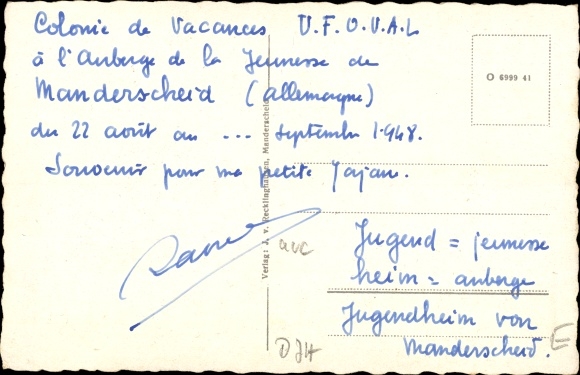 Colonie de Vacances U.F.O.V.A.L
à l'Auberge de la Jeunesse de
Manderscheid (allemagne)
du 22 août au ... septembre 1948.
Souvenir pour ma petite Jajan.
O 6999 41
Verlag: J. v. Recklinghausen, Manderscheid
avc
Jugend = jeunesse
heim = auberge
Jugendheim von
Manderscheid.
DJH
E